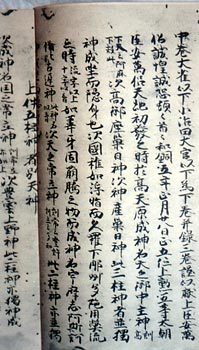 中巻大雀以下小治田大宮以下為下巻并録三巻謹以獻上臣安萬
侶誠惶誠恐頓々首々和銅五年正月廿八日正五位上勲五等太朝
臣安萬侶天地初發之時於高天原成神名天之御中主神訓高
下天云阿麻下效此次高御産巣日神次神産巣日神此三柱神者並獨
神成坐而隱身也次國稚如浮脂而久羅下那州多陁用弊流
之時如葦牙因萠騰之物而成神名宇摩志阿斯
次天之常立神此二柱神亦獨
上件五柱神者別天神
次成神名國之常立神次豊雲上野神此二柱神亦獨神成